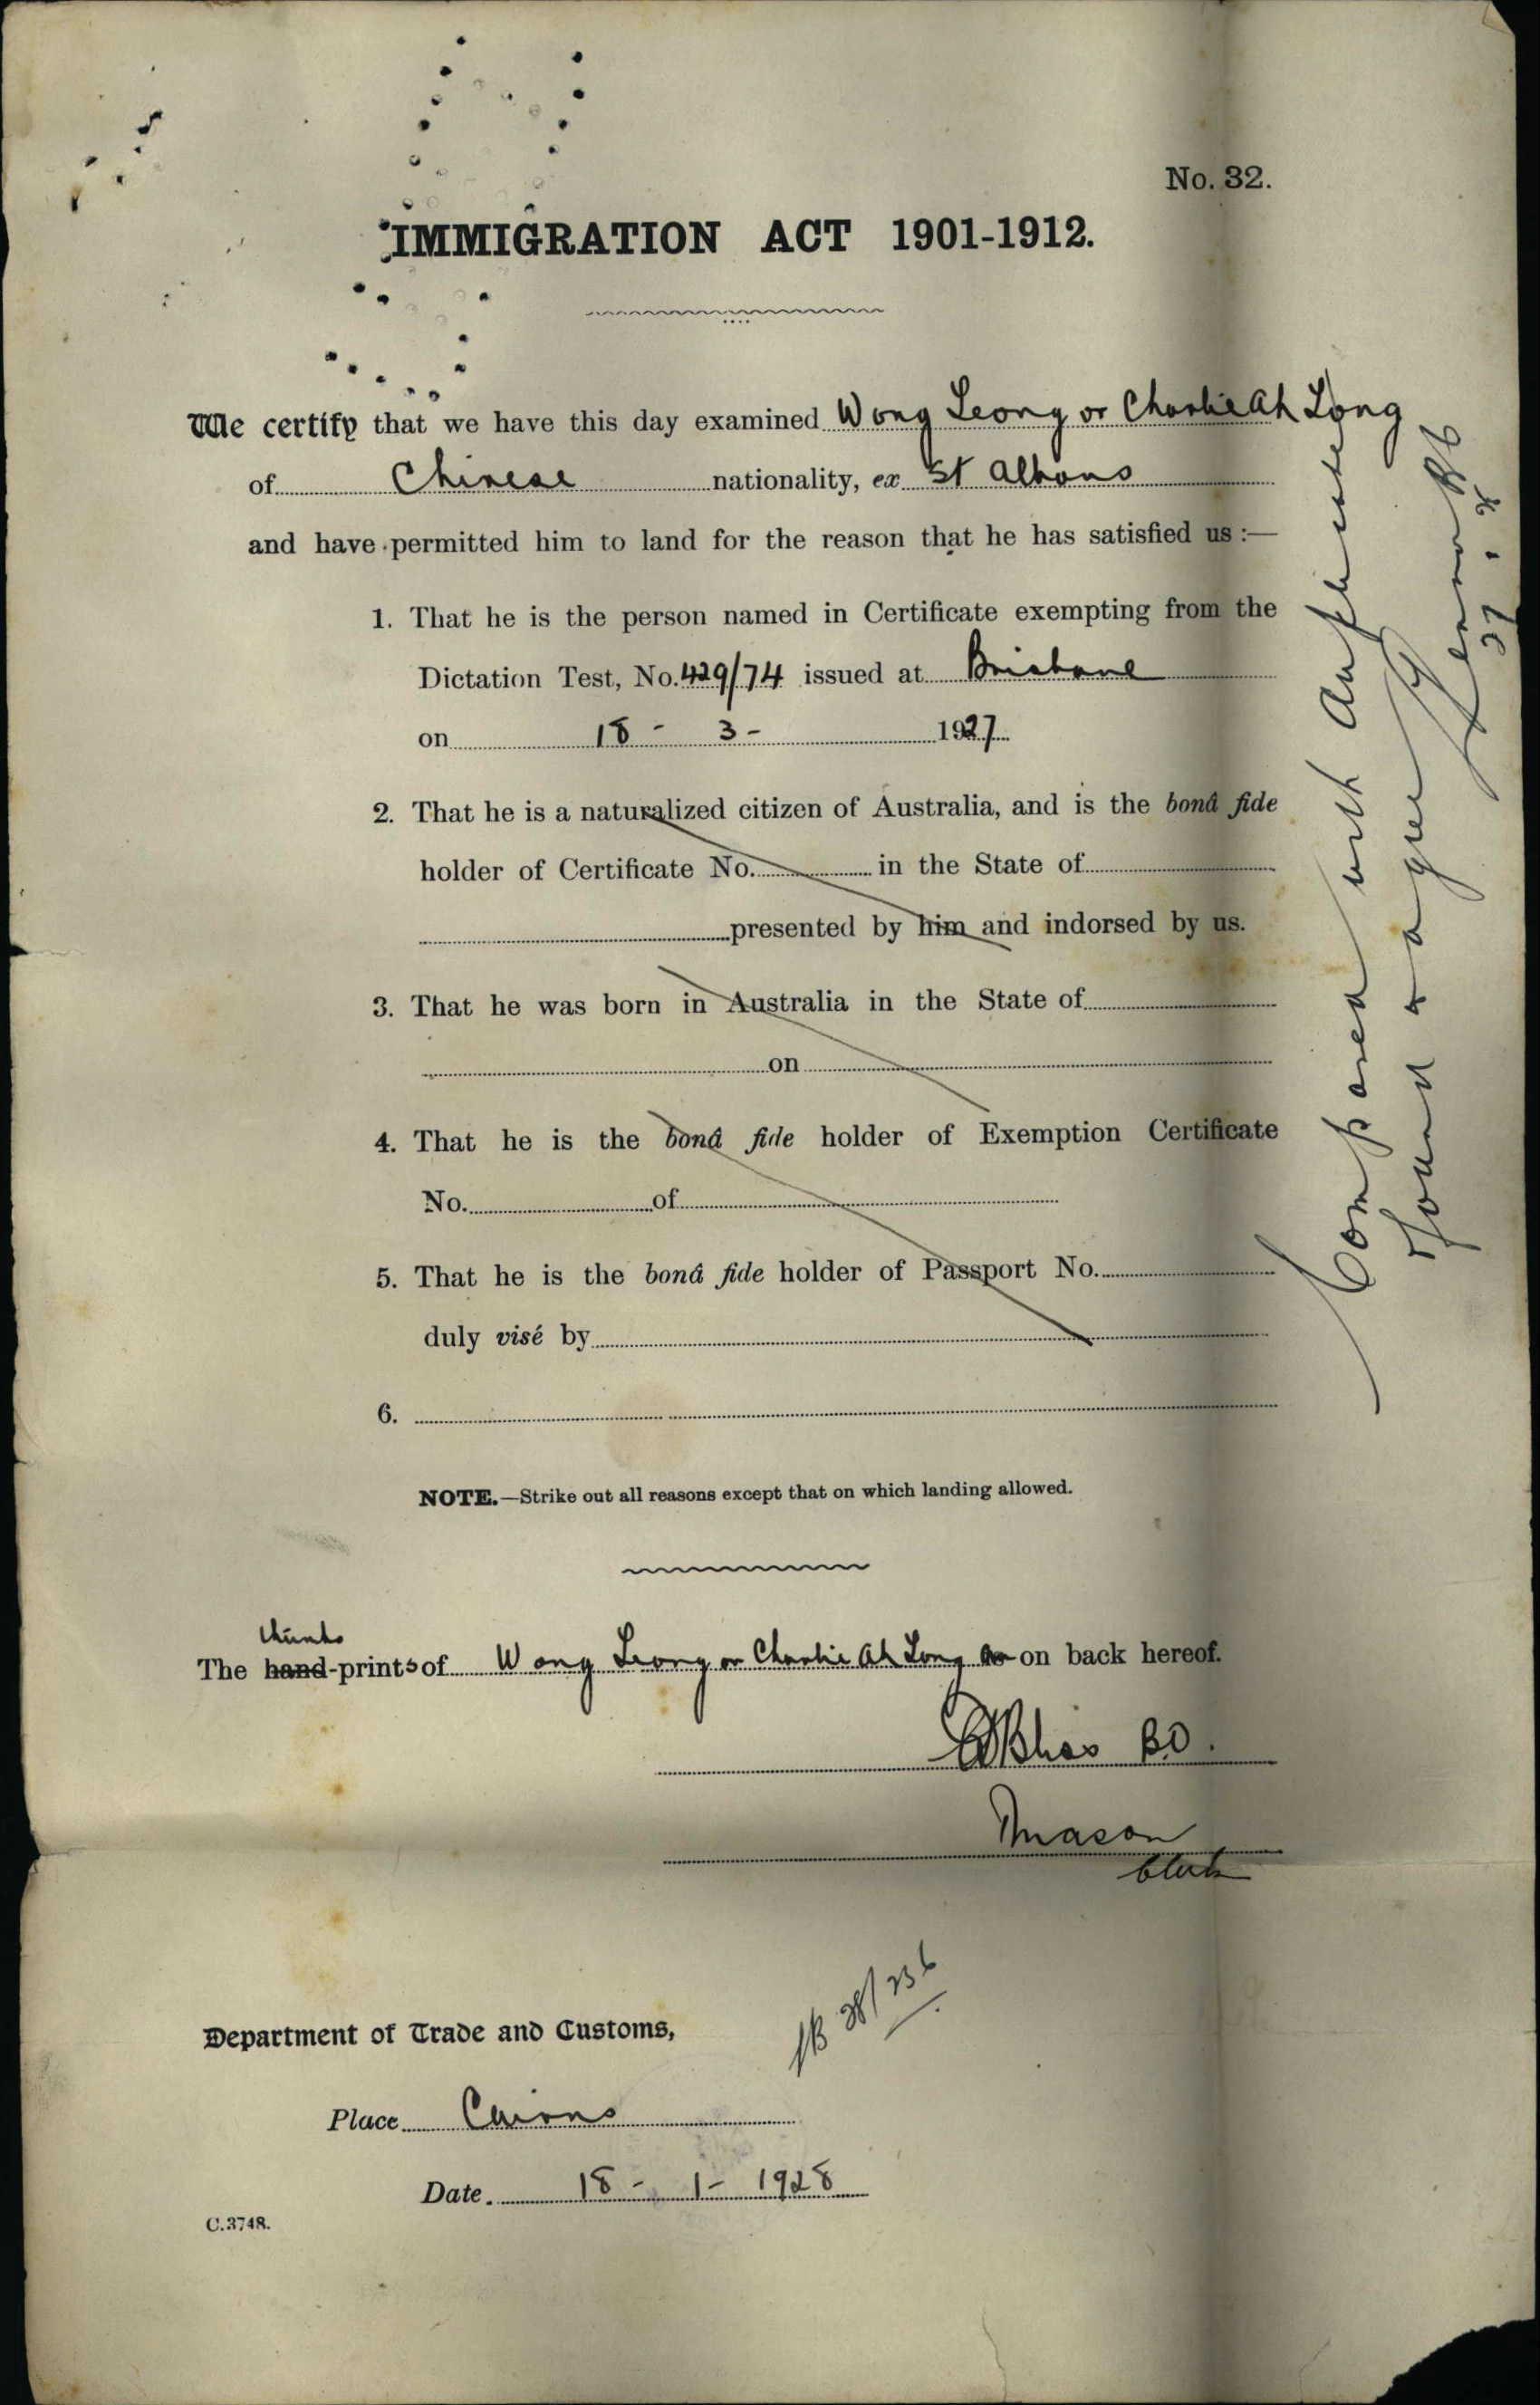 No. 32.
IMMIGRATION ACT 1901-1912.
We certify that we have this day examined Wong Leong or Charlie Ah Long
of Chinese nationality, ex St Albans
and have permitted him to land for the reason that he has satisfied us :—
1. That he is the person named in Certificate exempting from the
Dictation Test, No. 429/74 issued at Brisbane
on 18 - 3 - 1927
2. That he is a naturalized citizen of Australia, and is the bonâ fide
holder of Certificate No. in the State of
presented by him and indorsed by us.
3. That he was born in Australia in the State of
on
4. That he is the bonâ fide holder of Exemption Certificate
No. of
5. That he is the bonâ fide holder of Passport No.
duly visé by
6.
NOTE.—Strike out all reasons except that on which landing allowed.
thumb
The hand-prints of Wong Leong or Charlie Ah Long on back hereof.
B.O.
Mason
Clerk
28/236
Department of Trade and Customs,
Place Cairns
Date. 18 - 1 - 1928
C.3748.
Compared with duplicate
found to agree